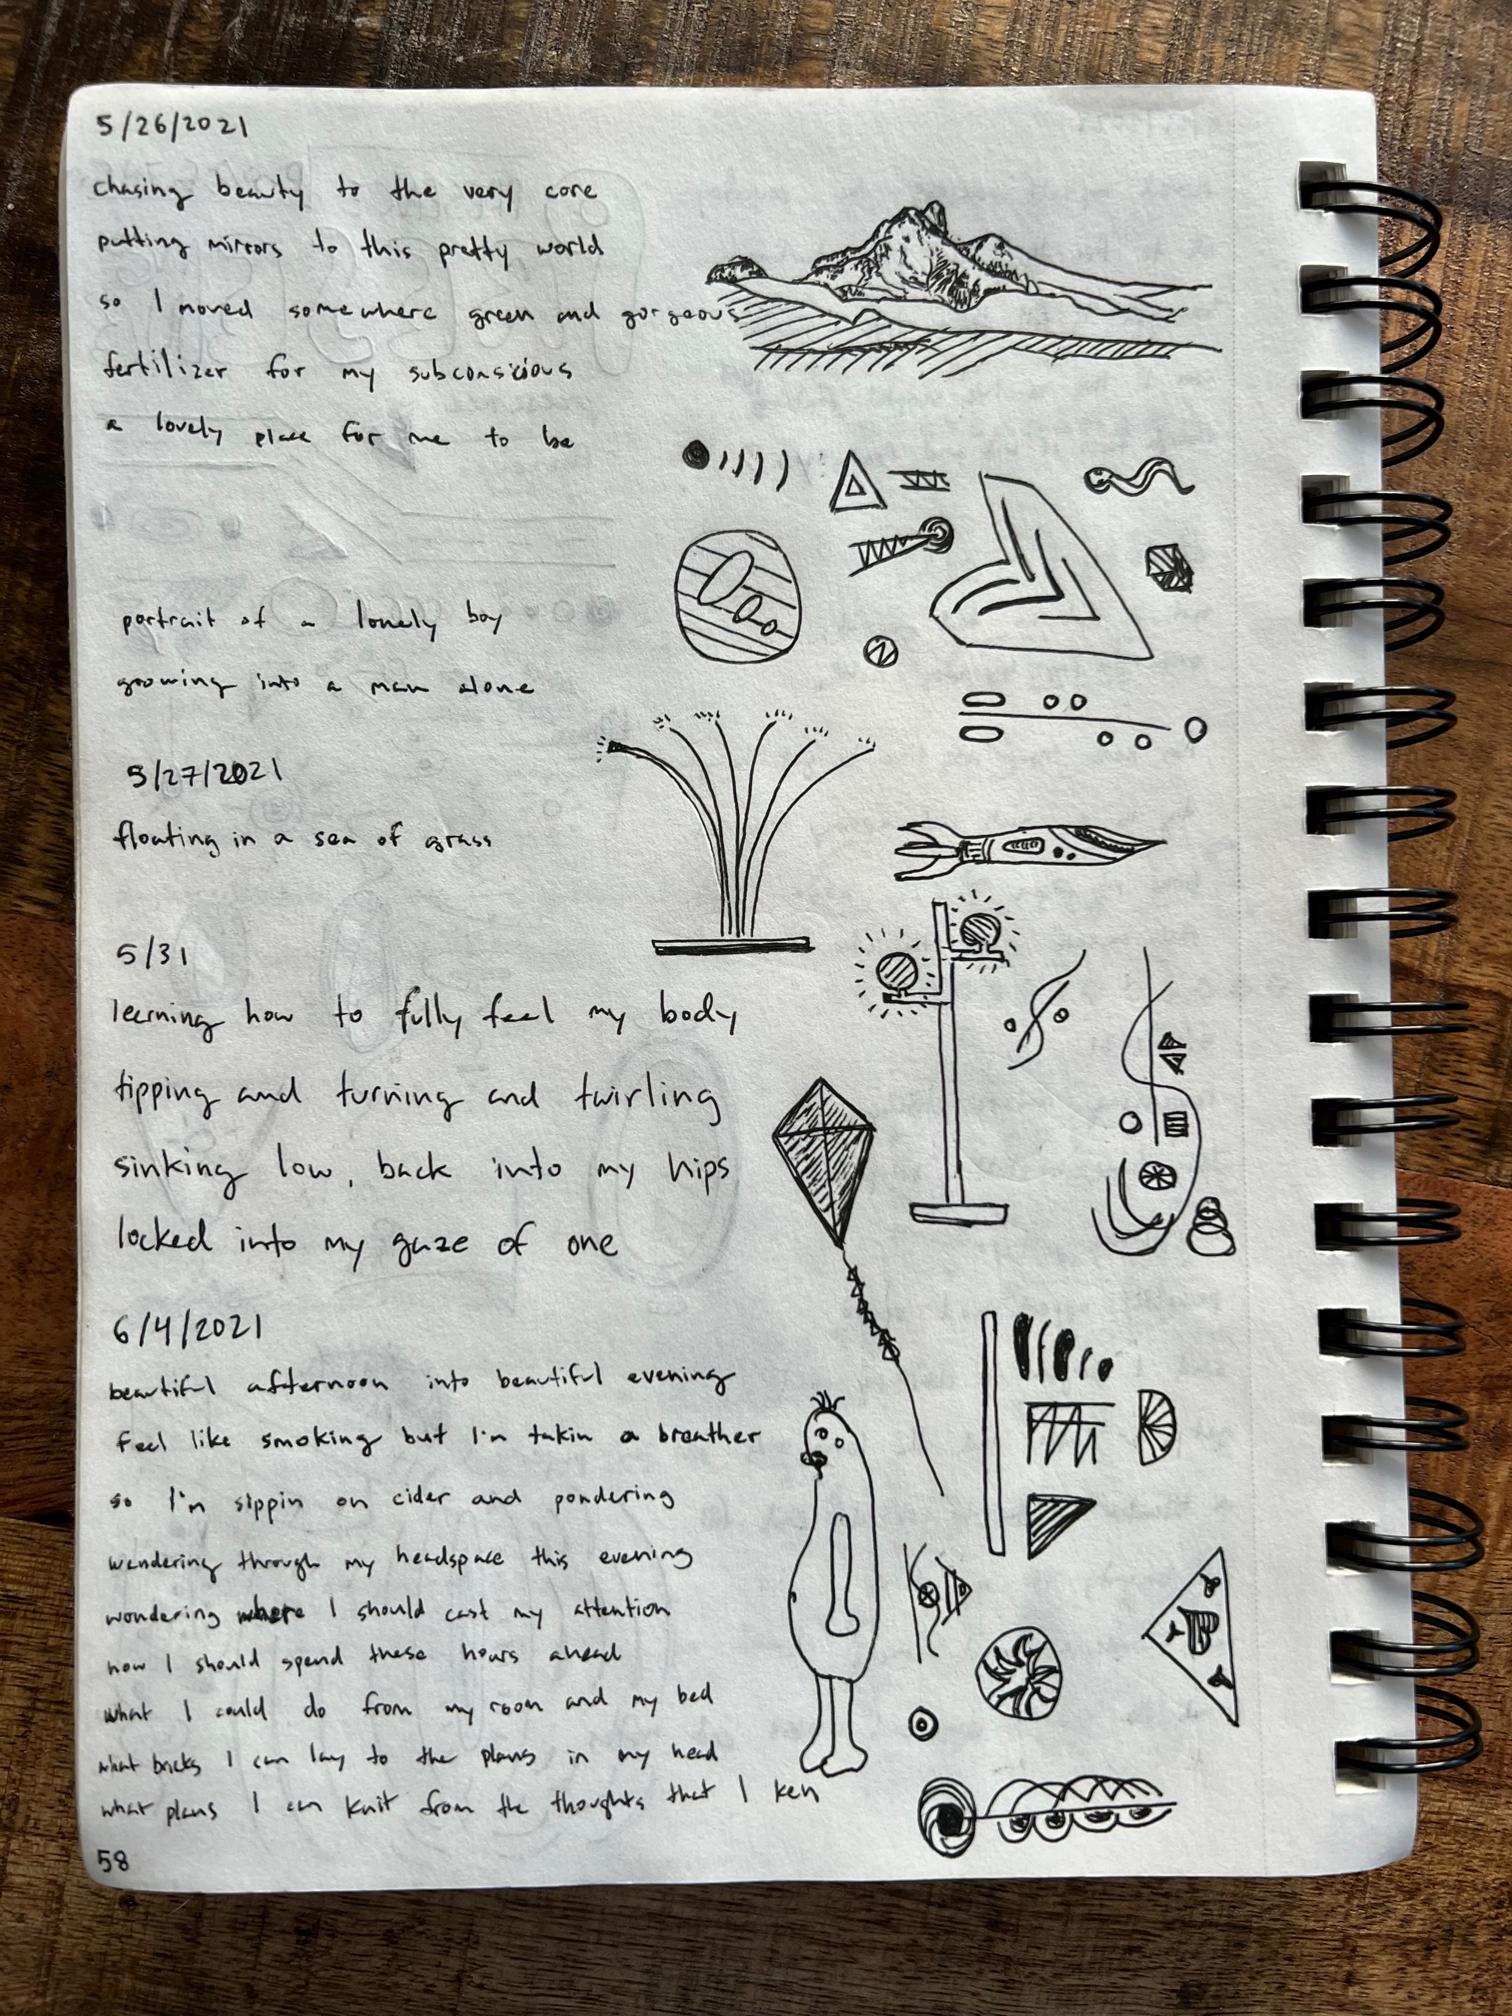 5/26/2021
chasing beauty to the very core
putting mirrors to this pretty world
so I moved somewhere green and gorgeous
fertilizer for my subconscious
a lovely place for me to be
portrait of a lonely boy
growing into a man alone
5/27/2021
floating in a sea of grass
5/31
learning how to fully feel my body
tipping and turning and twirling
sinking low, back into my hips
locked into my gaze of one
6/4/2021
beautiful afternoon into beautiful evening
feel like smoking but I'm takin a breather
so I'm sippin on cider and pondering
wandering through my headspace this evening
wondering where I should cast my attention
how I should spend these hours ahead
what I could do from my room and my bed
what bricks I can lay to the plans in my head
what plans I can knit from the thoughts that I ken
58